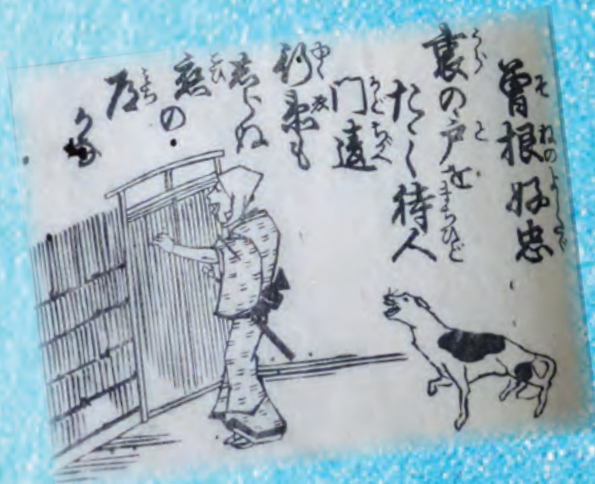 曾根好忠
裏の戸を
たゝく待人
門違
行衛も
しらぬ
恋の
道
かな